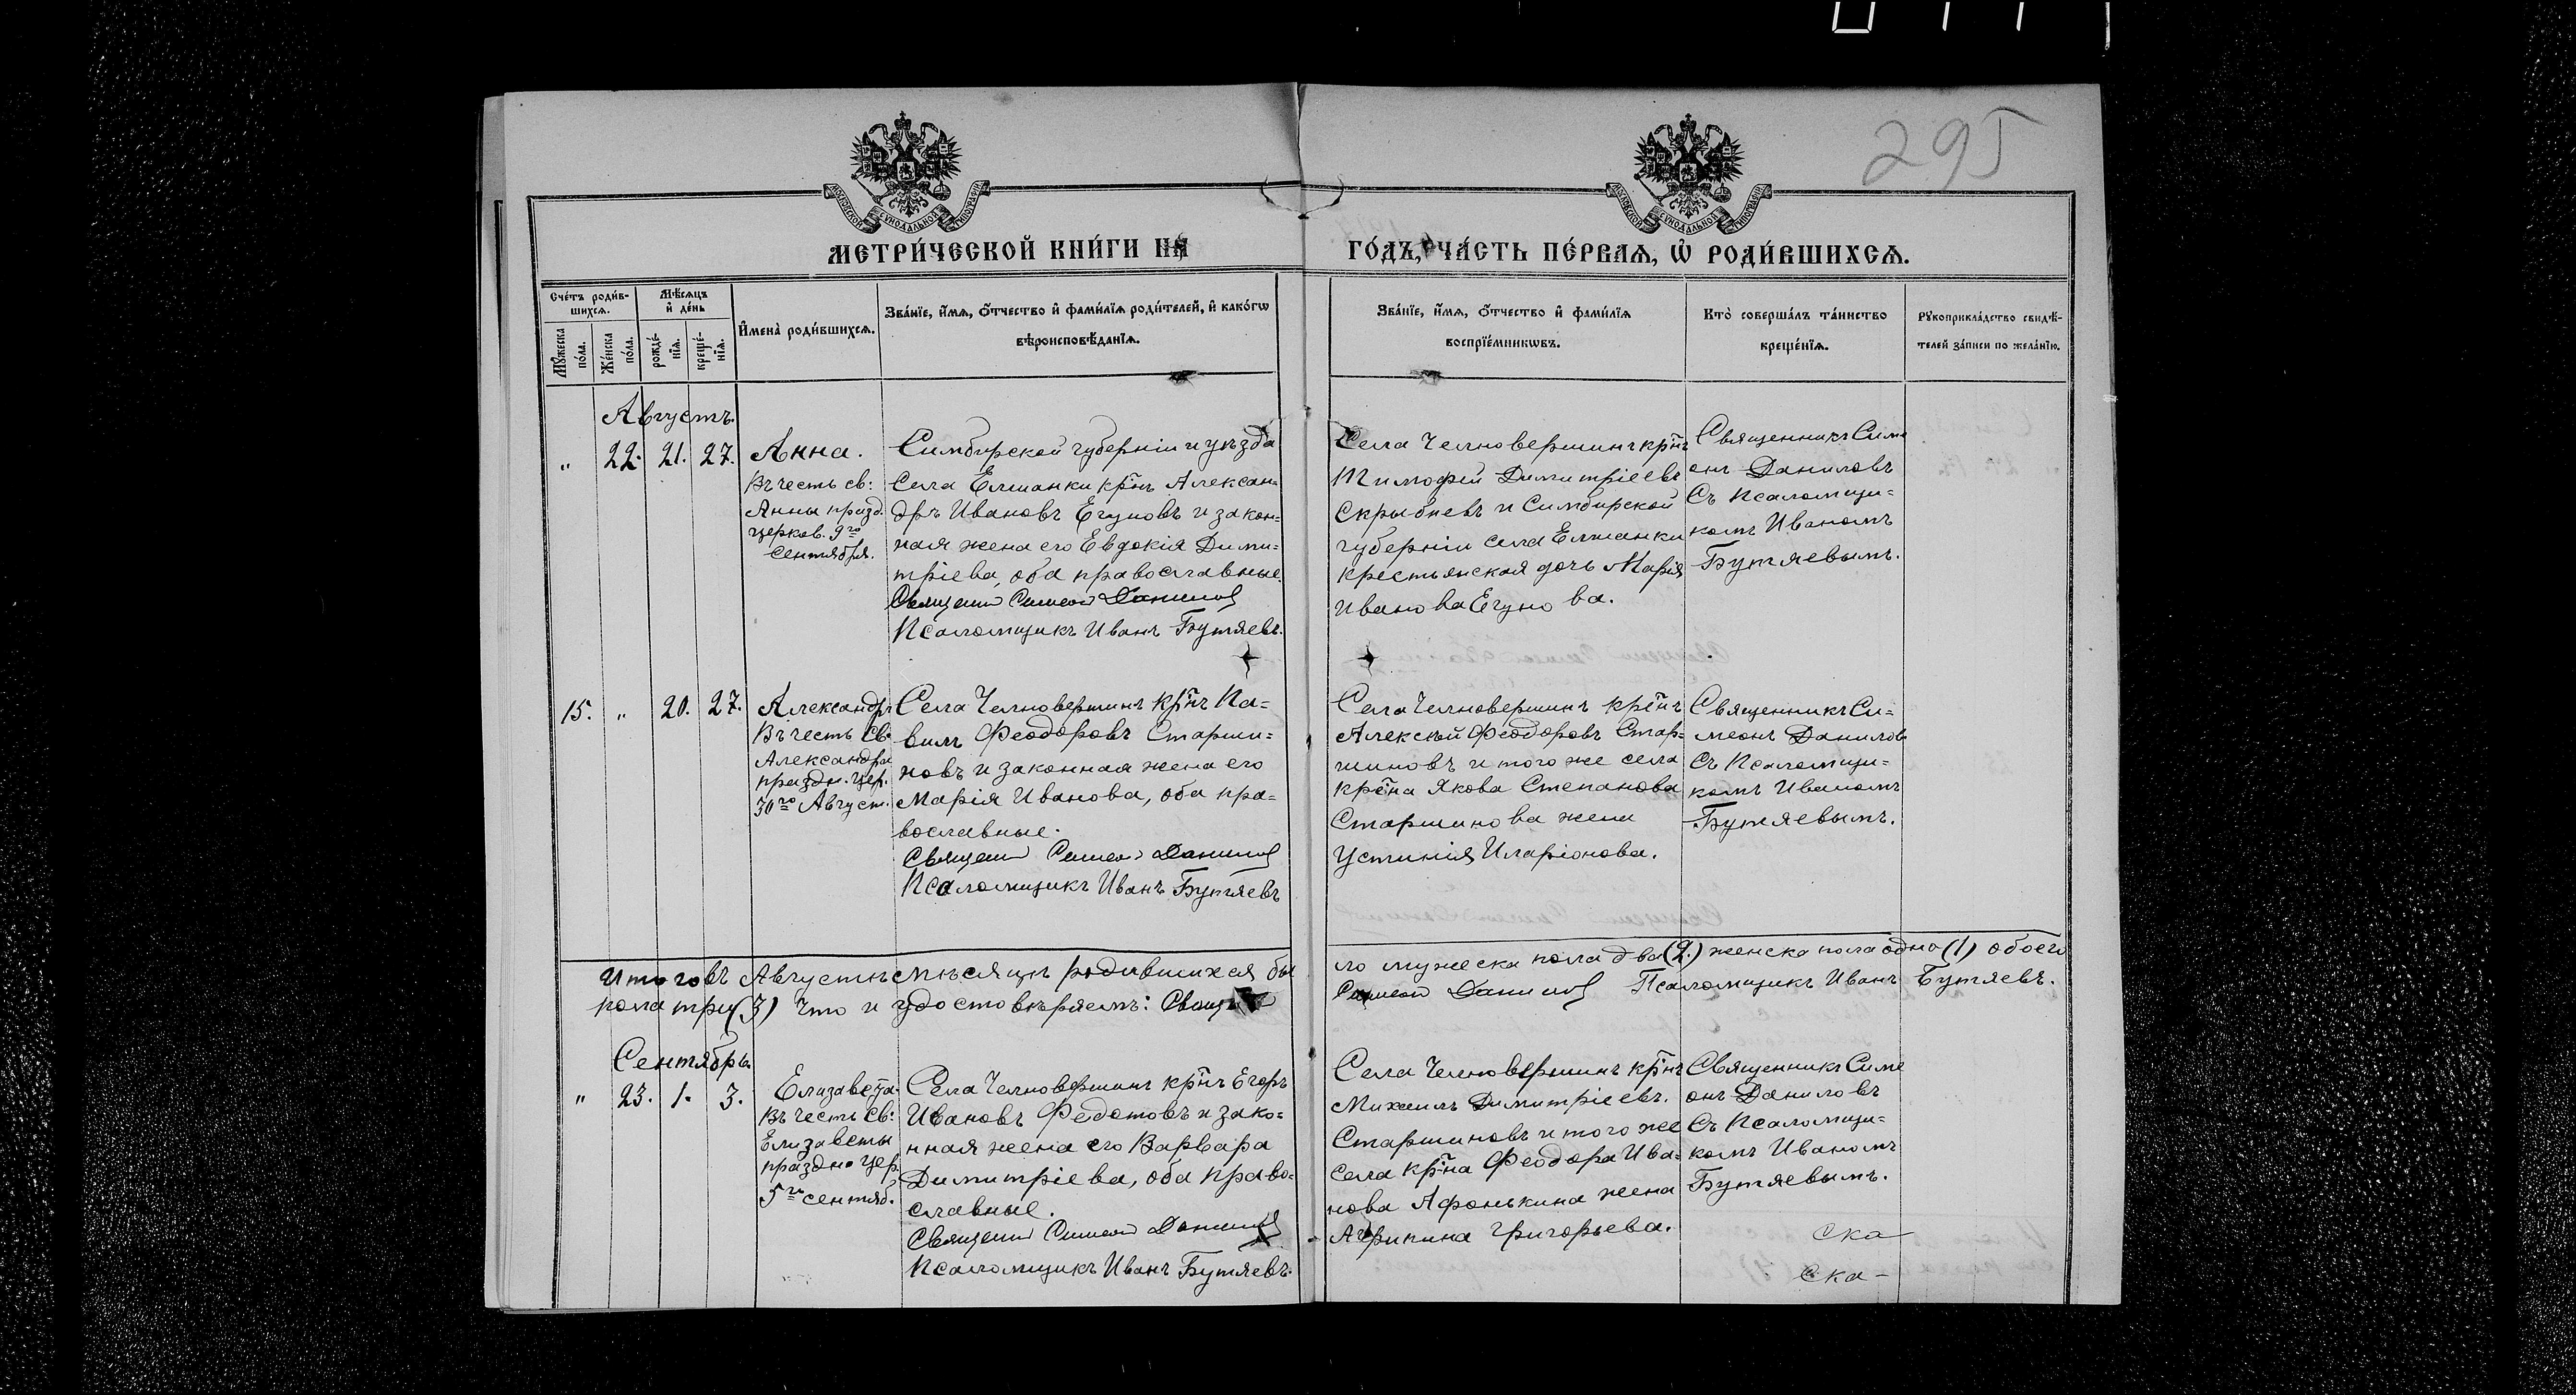 295
МОСКОВСКОЙ СѴНОДАЛЬНОЙ ТИПОГРАФІИ
МОСКОВСКОЙ СѴНОДАЛЬНОЙ ТИПОГРАФІИ
МЕТРИ́ЧЕСКОЙ КНИ́ГИ НА
ГО́ДЪ, ЧА́СТЬ ПЕ́РВАѦ, Ѡ҆ РОДИ́ВШИХСѦ.
Сче́тъ роди́в-
шихсѧ.
Мꙋ́жеска
по́ла.
Же́нска
по́ла.
Мѣ́сѧцъ
и҆ де́нь
рожде́-
нїѧ.
креще́-
нїѧ.
И҆мена̀ роди́вшихсѧ.
Зва́нїе, и҆́мѧ, ѻ҆́тчество и҆ фами́лїѧ роди́телей, и҆ како́гѡ
вѣроисповѣ́данїѧ.
Зва́нїе, и҆́мѧ, ѻ҆́тчество и҆ фами́лїѧ
воспрїе́мникѡвъ.
Кто̀ соверша́лъ та́инство
креще́нїѧ.
Рꙋкоприкла́дство свидѣ́-
телей за́писи по жела́нїю.
Августъ.
„ 22. 21. 27.
Анна.
Въ честь св:
Анны празд.
церков. 9го
сентября.
Симбирской губерніи и уѣзда
села Елшанки крн̃ъ Алексан=
дръ Ивановъ Егуновъ и закон=
ная жена его Евдокія Дими=
тріева, оба православные.
Священ Симеон Данилов
Псаломщикъ Иванъ Бутяевъ.
Села Челновершинъ крн̃ъ
Тимофей Димитріевъ
Скрыбневъ и Симбирской
губерніи села Елшанки
крестьянская дочь Марія
Иванова Егунова.
Священникъ Симе
онъ Даниловъ
Съ Псаломщи=
комъ Иваномъ
Бутяевымъ.
15. „ 20. 27.
Александръ
Въ честь Св.
Александра
праздн. цер.
30го Август.
Села Челновершинъ крн̃ъ Па=
вилъ Феодоровъ Старши=
новъ и законная жена его
Марія Иванова, оба пра=
вославные.
Священ Симеон Данилов
Псаломщикъ Иванъ Бутяевъ
Села Челновершинъ крн̃ъ
Алексѣй Феодоровъ Стар=
шиновъ и того же села
крн̃на Якова Степанова
Старшинова жена
Устинія Иларіонова.
Священникъ Си=
меонъ Данилов
Съ Псаломщи=
комъ Иваномъ
Бутяевымъ.
Итого въ Августѣ мѣсяцѣ родившихся бы
ло мужеска пола два (2.) женска пола одна (1) обоего
пола три (3) Что и удостовѣряемъ: Священ
Симеон Данилов Псаломщикъ Иванъ Бутяевъ.
Сентябрь
„ 23. 1. 3.
Елизавета.
Въ честь Св:
Елизаветы
праздн. цер.
5го сентяб.
Села Челновершинъ крн̃ъ Егоръ
Ивановъ Федотовъ и зако=
нная жена его Варвара
Димитріева, оба право=
славные.
Священ Симеон Данилов
Псаломщикъ Иванъ Бутяевъ.
Села Челновершинъ крн̃ъ
Михаилъ Димитріевъ.
Старшиновъ и того же
села крн̃на Феодора Ива=
нова Афонькина жена
Агрипина Григорьева.
Священникъ Симе
онъ Даниловъ
Съ Псаломщи=
комъ Иваномъ
Бутяевымъ.
Ска
Ска-